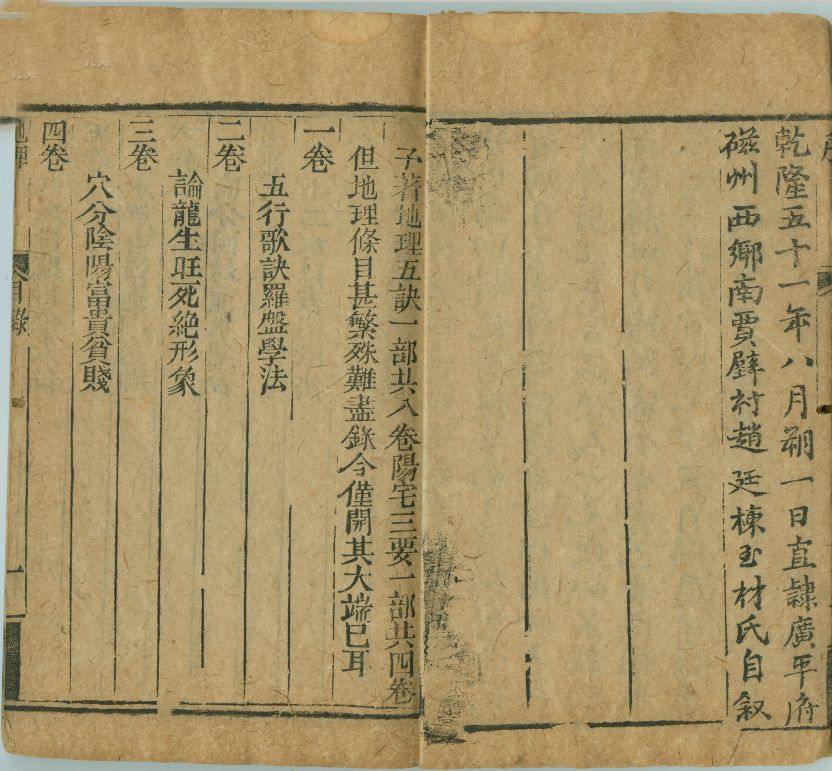 乾隆五十一年八月朔一日直隸廣平府
磁州西鄉南賈壁村趙廷棟玉材氏自叙
子著地理五訣一部共八卷陽宅三要一部共四卷
但地理條目甚繁殊難盡錄今僅開其大端已耳
一卷
五行歌訣羅盤學法
二卷
論龍生旺死絕形象
三卷
穴分陰陽富貴貧賤
四卷
地理
目錄
一